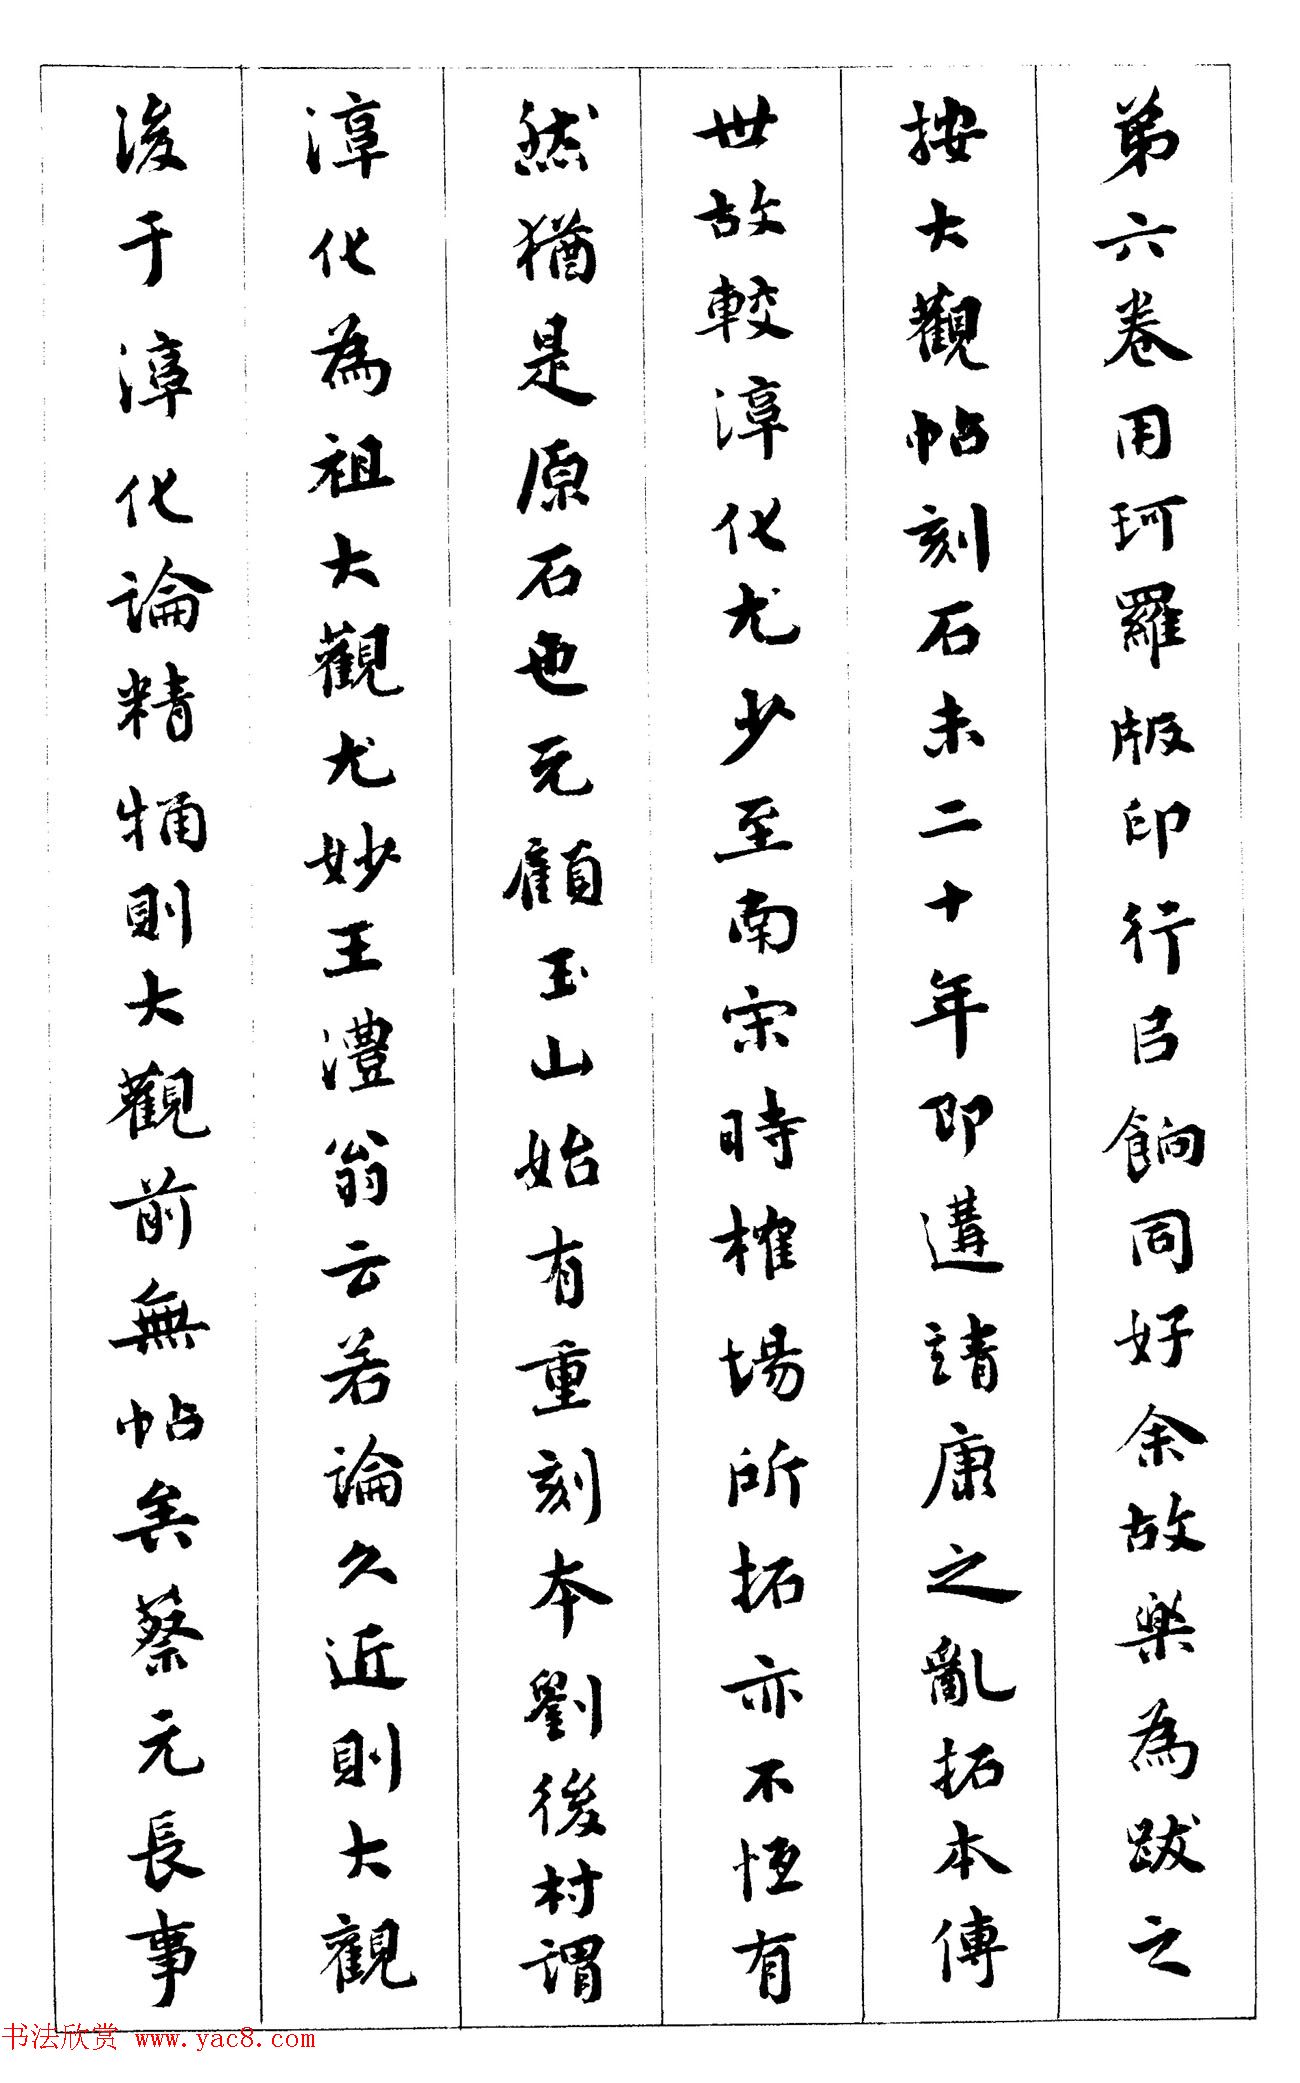 弟六卷用珂羅版印行㠯餉同好余故樂為跋之
按大觀帖刻石未二十年即遘靖康之亂拓本傳
世故較淳化尤少至南宋時榷場所拓亦不恆有
然猶是原石也元顧玉山始有重刻本劉後村謂
淳化為祖大觀尤妙王澧翁云若論久近則大觀
後于淳化論精牰則大觀前無帖矣蔡元長事
书法欣赏 www.yac8.com